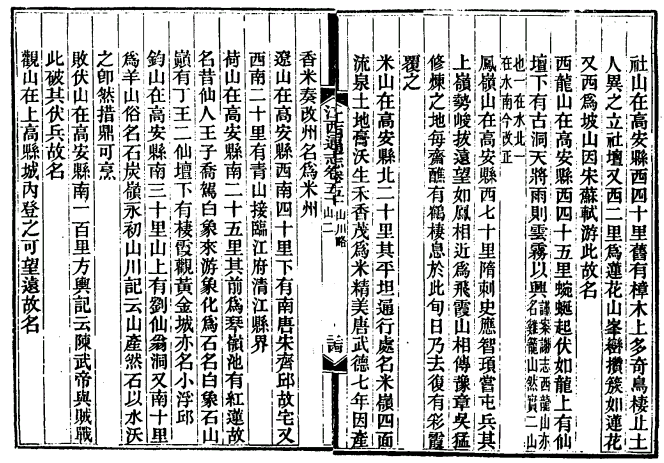 社山在高安縣西四十里舊有樟木上多奇鳥棲止土
人異之立社壇又西二里爲蓮花山峯巒攢簇如蓮花
又西爲坡山因宋蘇軾游此故名
西龍山在高安縣西四十五里蜿蜒起伏如龍上有仙
壇下有古洞天將雨則雲霧以興謹案謝志西龍山亦名雞籠山然實二山
也一在水北一在水南今改正
鳳嶺山在高安縣西七十里隋刺史應智頊當屯兵其
上嶺勢峻拔遠望如鳳相近爲飛霞山相傳豫章吳猛
修煉之地每齋醮有鶴棲息於此旬日乃去復有彩霞
覆之
米山在高安縣北二十里其平坦遍行處名米嶺四面
流泉土地膏沃生禾香茂爲米精美唐武德七年因產
江西通志卷五十 山川略 山二
香米奏改州名爲米州
遼山在高安縣西南四十里下有南唐朱齊邱故宅又
西南二十里有青山接臨江府清江縣界
荷山在高安縣南二十五里其前爲琴嶺池有紅蓮故
名昔仙人王子喬駕白象來游象化爲石名白象石山
巔有丁王二仙壇下有棲霞觀黃金城亦名小浮邱
鈞山在高安縣南三十里山上有劉仙翁洞又南十里
爲羊山俗名石炭嶺永初山川記云山產然石以水沃
之卽然措鼎可烹
敗伏山在高安縣南一百里方輿記云陳武帝與賊戰
此破其伏兵故名
觀山在上高縣城內登之可望遠故名